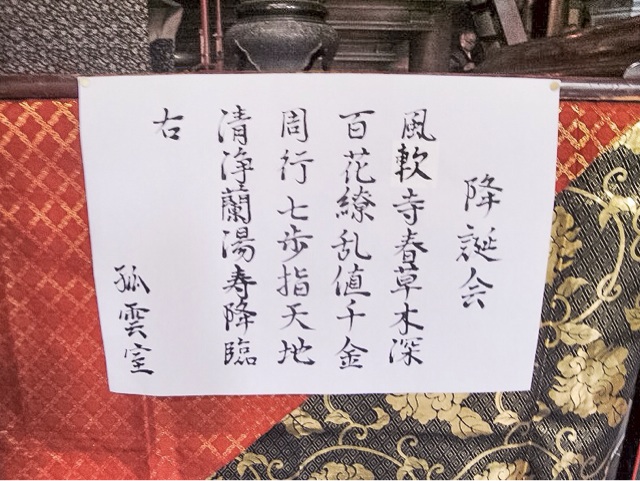 降誕会
風軟寺春草木深
百花繚乱値千金
周行七歩指天地
清浄蘭湯寿降臨
右
孤雲室